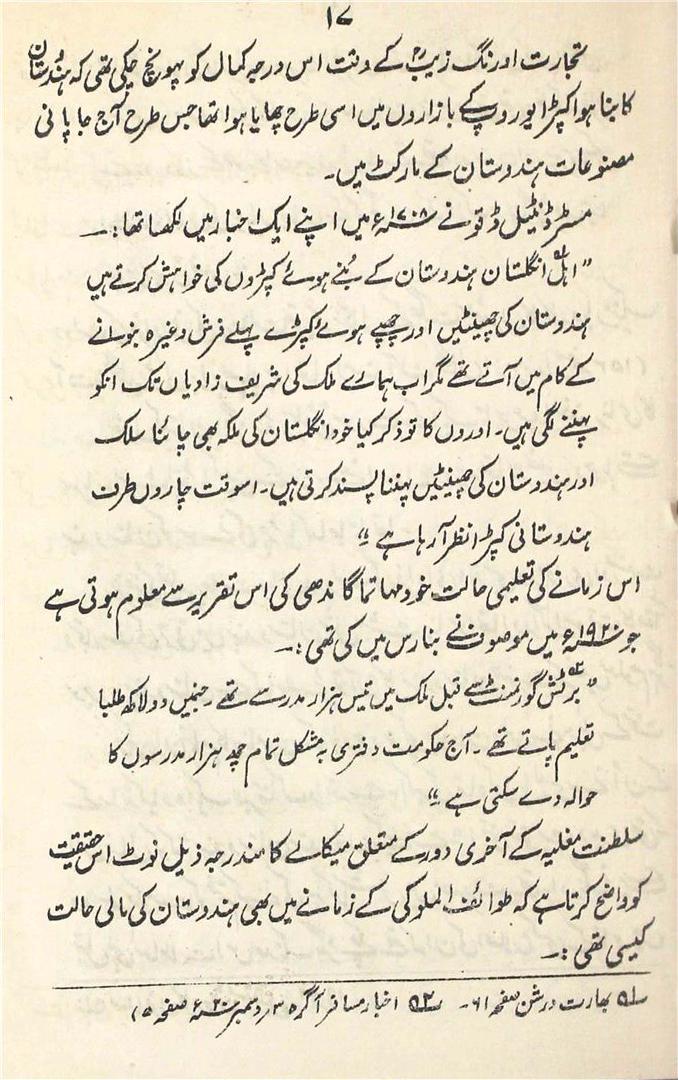 ۱۷
تجارت اورنگ زیبؒ کے وقت اس درجہ کمال کو پہونچ چکی تھی کہ ہندوستان
کا بنا ہوا کپڑا یوروپ کے بازاروں میں اسی طرح چھایا ہوا تھا جس طرح آج جاپانی
مصنوعات ہندوستان کے مارکٹ میں۔
مسٹر ڈنئیل ڈفونے ۱۷۰۸ء میں اپنے ایک اخبار میں لکھا تھا:۔
" اہل انگلستان ہندوستان کے بُنے ہوئے کپڑوں کی خواہش کرتے ہیں
ہندوستان کی چھینٹیں اور چھپے ہوئے کپڑے پہلے فرش وغیرہ بنوانے
کے کام میں آتے تھے مگر اب ہمارے ملک کی شریف زادیاں تک انکو
پہننے لگی ہیں۔ اوروں کا تو ذکر کیا خود انگلستان کی ملکہ بھی چائنا سلک
اور ہندوستان کی چھینٹیں پہننا پسند کرتی ہیں۔ اسوقت چاروں طرف
ہندوستانی کپڑا نظر آرہا ہے "
اس زمانے کی تعلیمی حالت خود مہاتما گاندھی کی اس تقریر سے معلوم ہوتی ہے
جو ۱۹۲۰ء میں موصوف نے بنارس میں کی تھی:۔
" برٹش گورنمنٹ سے قبل ملک میں تیس ہزار مدرسے تھے۔ جنمیں دو لاکھ طلبا
تعلیم پاتے تھے۔ آج حکومت دفتری بہ مشکل تمام چھ ہزار مدرسوں کا
حوالہ دے سکتی ہے "
سلطنت مغلیہ کے آخری دور کے متعلق میکالے کا مندرجہ ذیل نوٹ اس حقیقت
کو واضح کرتا ہے کہ طوائف الملوکی کے زمانے میں بھی ہندوستان کی مالی حالت
کیسی تھی:۔
۱؎ بھارت درشن صفحہ ۶۱۔ ۲؎ اخبار مسافر آگرہ ۳؍ دسمبر ۲۰ء صفحہ ۵)